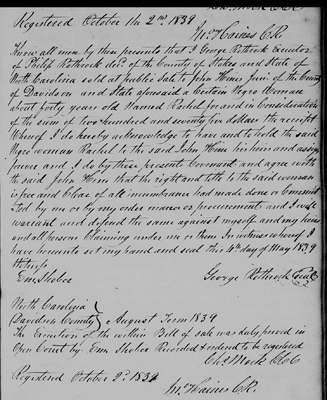 Registered October the 2nd 1839
Jno. Haines C.R.
Know all men by these presents that I George Rothrock Executor
of Philip Rothrock decd. of the County of Stokes and State of
North Carolina sold at public Sale to John Horns Junr. of the County
of Davidson and State aforesaid a Certain Negro Woman
about forty years old Named Rachel for and in Consideration
of the sum of two hundred and seventy five dollars the receipt
Whereof I do hereby acknowledge to have and to hold the said
Negro woman Rachel to the said John Horns his heirs and assigns
forever and I do by these presents Covenant and agree with
the said John Horns that the right and title to the said woman
is free and Clear of all incumbrances had made done or Commit
ted by me or by my order means or procurement and I will
warrant and defend the same against myself and my heirs
and all persons Claiming under me or them In witness whereof I
have hereunto set my hand and seal this 4th day of May 1839
Witness
George Rothrock
North Carolina
Davidson County August Term 1839
The Execution of the within Bill of sale was duly proved in
Open Court by Recorded & ordered to be registered
Chs Mock Clk
Registered October 2d 1839
Jno. Haines C.R.